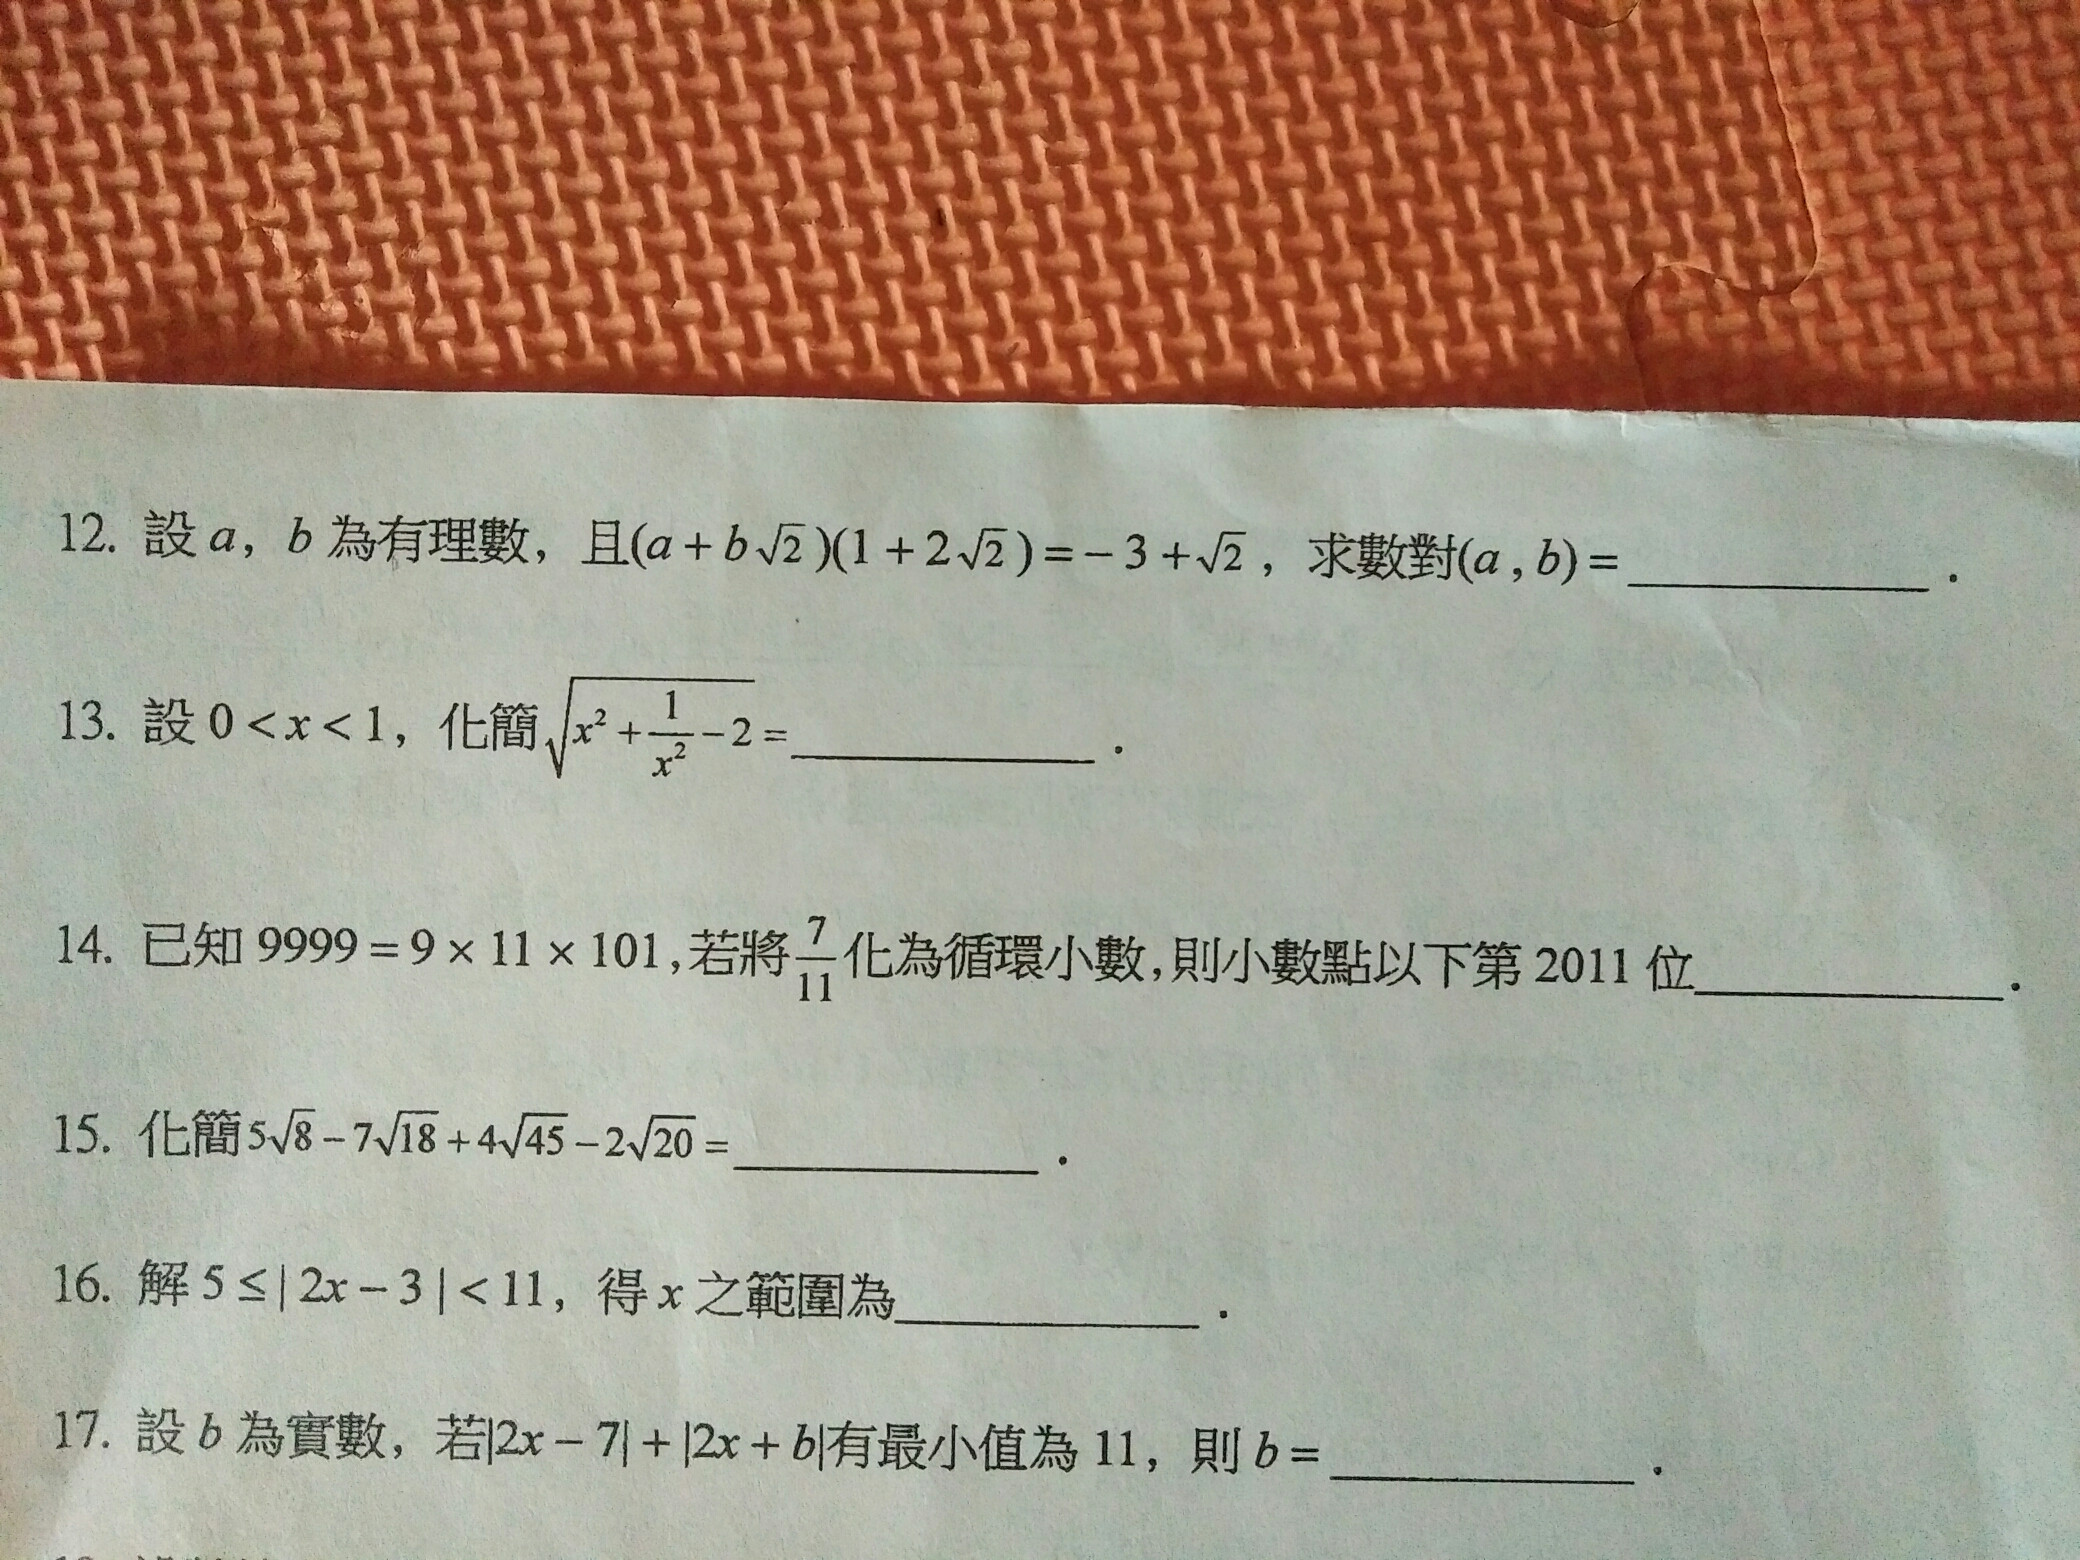 12. 設 a，b 為有理數，且(a + b√2)(1 + 2√2) = – 3 + √2，求數對(a , b) = ____________ .
13. 設 0 < x < 1，化簡√(x² + 1/x² – 2) = ____________ .
14. 已知 9999 = 9 × 11 × 101,若將 7/11 化為循環小數,則小數點以下第 2011 位____________.
15. 化簡5√8 – 7√18 + 4√45 – 2√20 = ____________ .
16. 解 5 ≤ | 2x – 3 | < 11，得 x 之範圍為____________ .
17. 設 b 為實數，若|2x – 7| + |2x + b|有最小值為 11，則 b = ____________ .